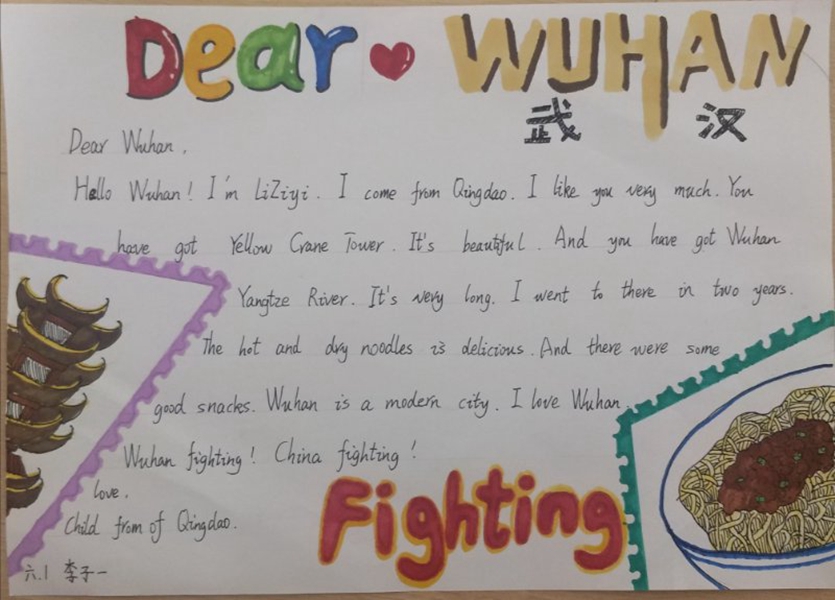 Dear WUHAN
武汉
Dear Wuhan,
Hello Wuhan! I'm LiZiyi. I come from Qingdao. I like you very much. You
have got Yellow Crane Tower. It's beautiful. And you have got Wuhan
Yangtze River. It's very long. I went to there in two years.
The hot and dry noodles is delicious. And there were some
good snacks. Wuhan is a modern city. I love Wuhan.
Wuhan fighting! China fighting!
love,
Child from of Qingdao.
Fighting
六.1 李子一